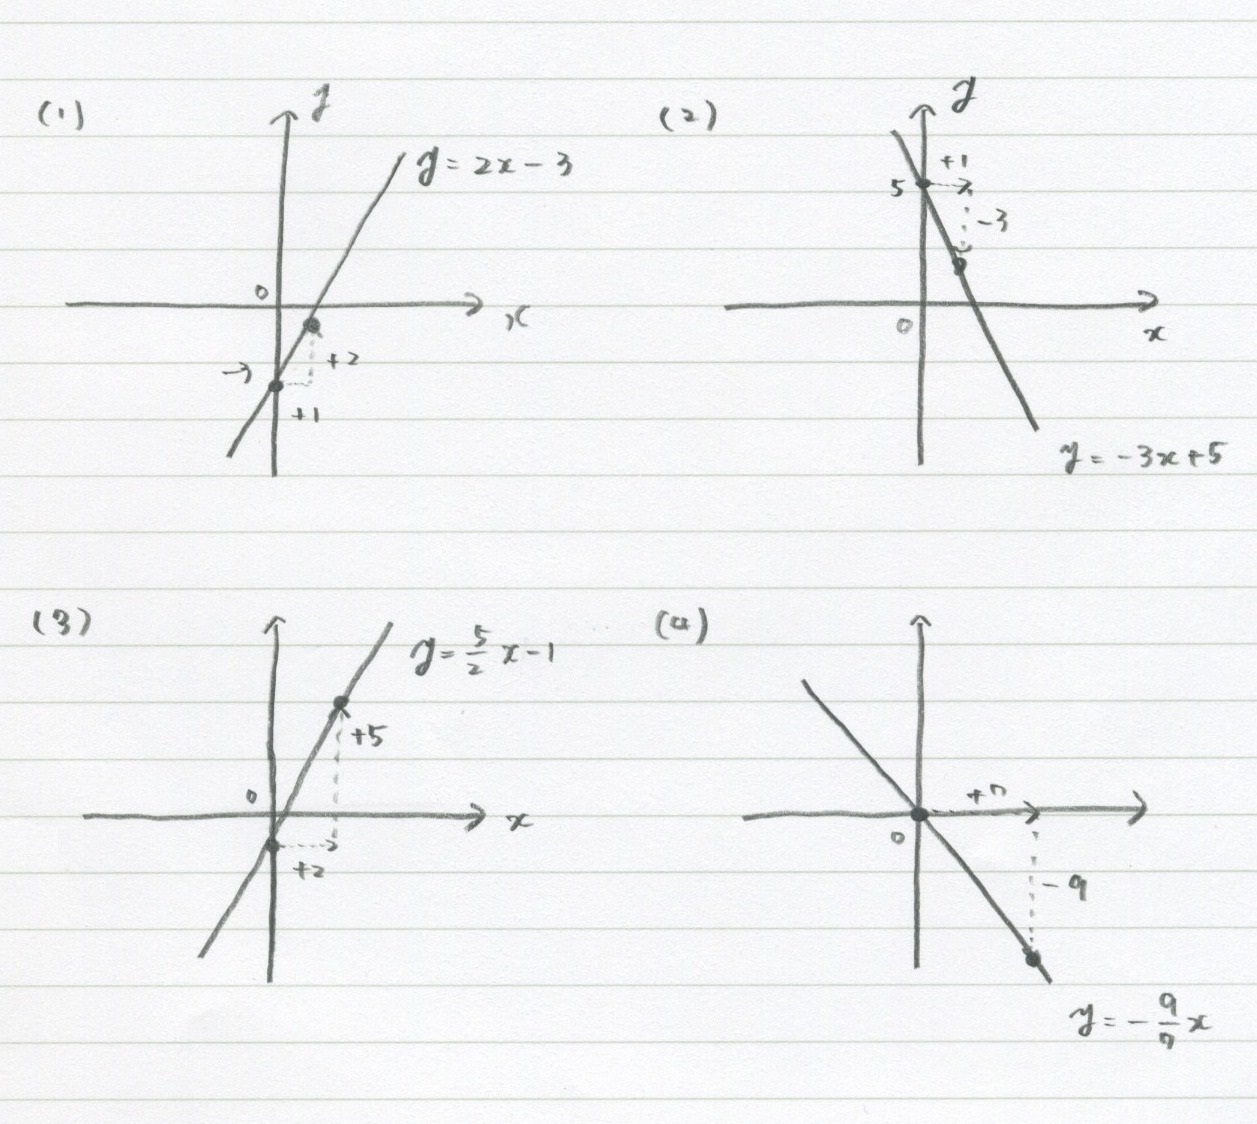 (1)
y
y=2x-3
0
x
+2
+1
(2)
y
+1
5
-3
0
x
y=-3x+5
(3)
y=5/2 x-1
+5
0
x
+2
(4)
+7
0
-9
y=-9/7 x